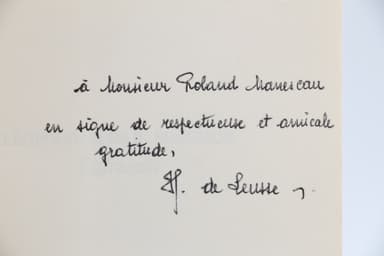 à Monsieur Roland Manescau
en signe de respectueuse et amicale
gratitude,
H. de Leusse